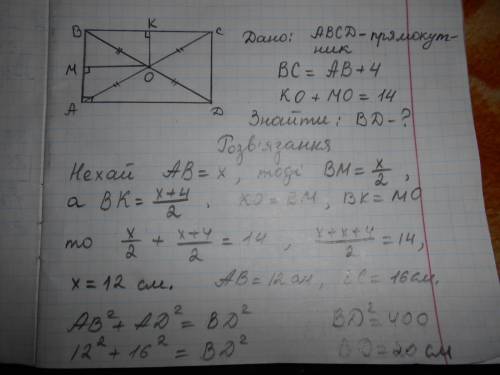 B K C
M O
A D
Дано: ABCD - прямокут-
ник
BC = AB + 4
KO + MO = 14
Знайти: BD - ?
Розв'язання
Нехай AB = x, тоді BM = x/2,
а BK = (x+4)/2. KO = BM, BK = MO
то x/2 + (x+4)/2 = 14, (x+x+4)/2 = 14,
x = 12 см. AB = 12 см, BC = 16 см.
AB² + AD² = BD² BD² = 400
12² + 16² = BD² BD = 20 см